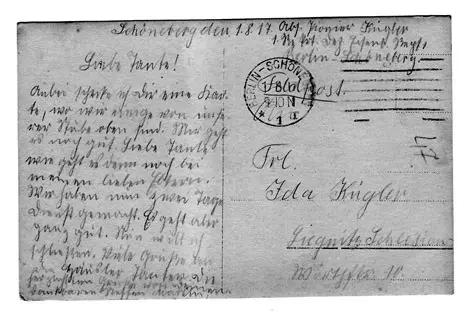 Schöneberg den 1.8.17. Abs. Pionier Kügler
Berlin-Schöneberg.
Liebe Tante!
Anbei schicke ich Dir eine Kar
te, wo wir einige von unse
rer Stube oben sind. Mir geht
es noch gut. Liebe Tante
wie geht es denn noch bei
meinen lieben Eltern.
Wir haben nun zwei Tage
Dienst gemacht. Es geht aber
ganz gut. Nun will ich
schließen. Viele Grüße
Tante
dankbaren Neffen
BERLIN-SCHÖNEBERG
1
Feldpost.
Frl.
Ida Kügler
Liegnitz Schlesien
10.